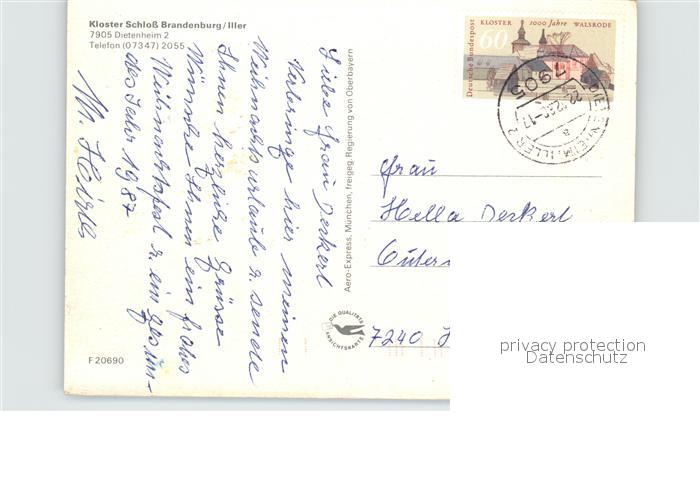 Kloster Schloß Brandenburg/Iller
7905 Dietenheim 2
Telefon (07347) 2055
Liebe Frau Deckert
Verbringe hier meinen
Weihnachtsurlaub u. sende
Ihnen herzliche Grüsse
Wünsche Ihnen ein frohes
Weihnachtsfest u. ein gesun-
des Jahr 1987
F 20690
Aero-Express, München, freigeg. Regierung von Oberbayern
DIE QUALITÄTS
ANSICHTSKARTE
Deutsche Bundespost
60
KLOSTER 1000 Jahre WALSRODE
7905
DIETENHEIM, ILLER 2
a
Frau
Hella Deckert
7240
privacy protection
Datenschutz